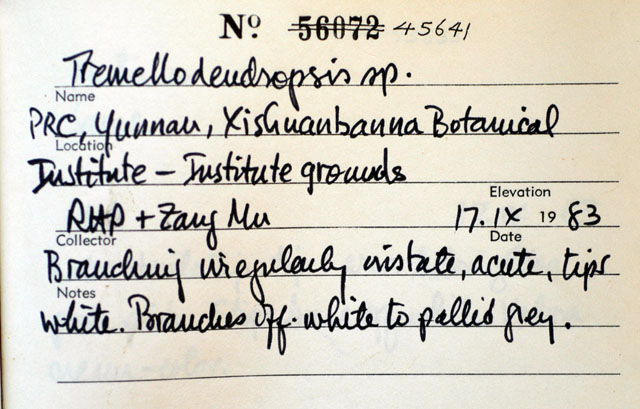 Nº 56072 45641
Tremellodendropsis sp.
Name
PRC, Yunnan, Xishuanbanna Botanical
Location
Institute - Institute grounds
Elevation
RHP + Zang Mu 17.IX 1983
Collector Date
Branching irregularly cristate, acute, tips
Notes
white. Branches off-white to pallid grey.